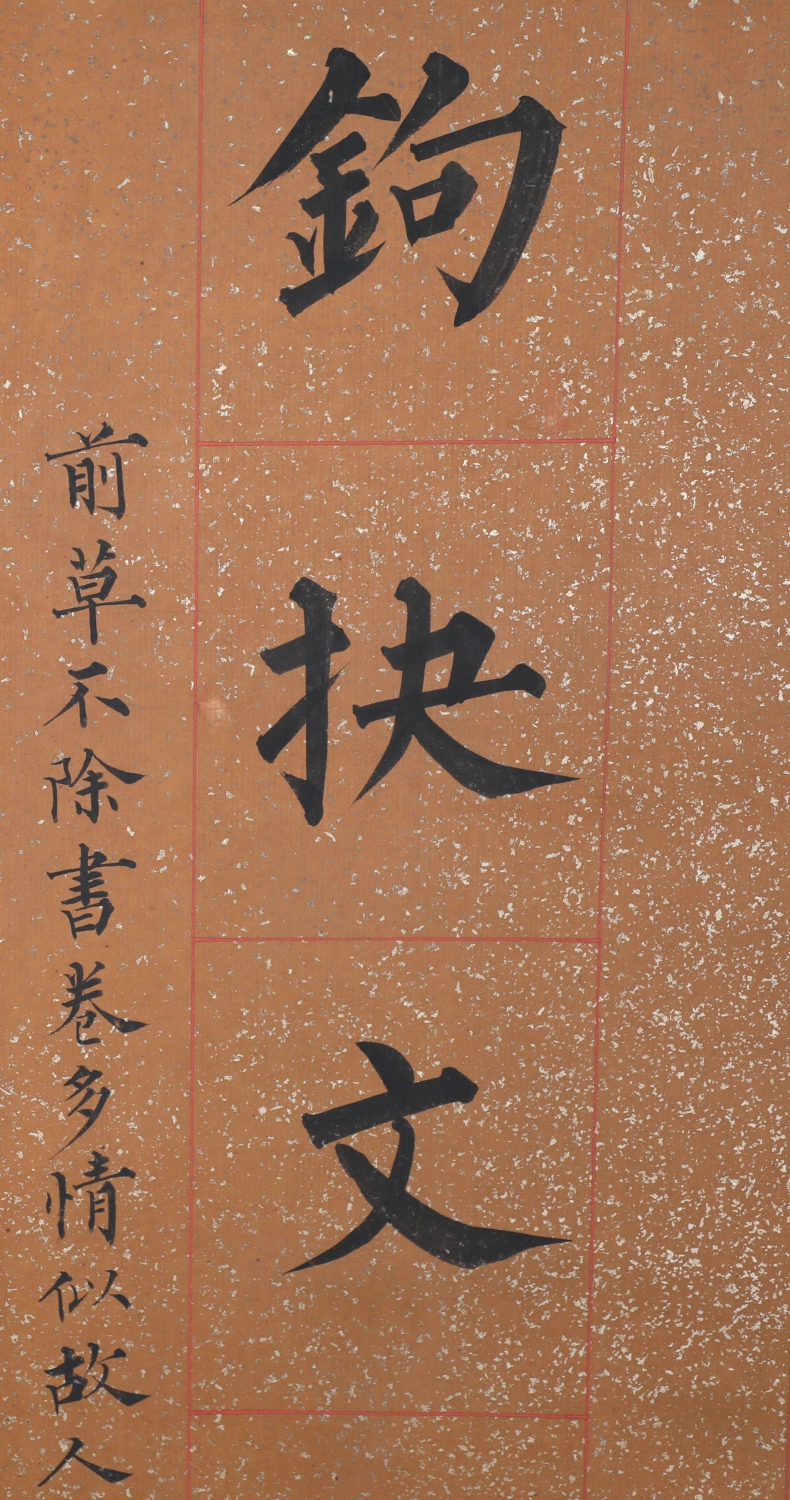 鉤抉文
前草不除書卷多情似故人